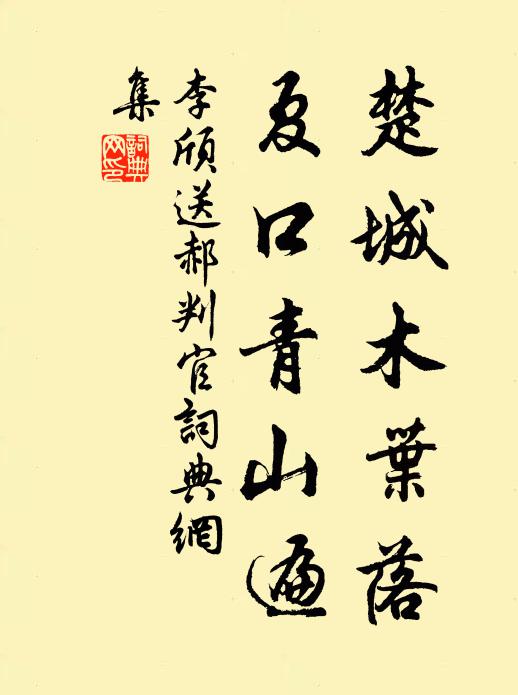 楚城木葉落
夏口青山遍
李頎送郝判官詞典網
集
詞典網印